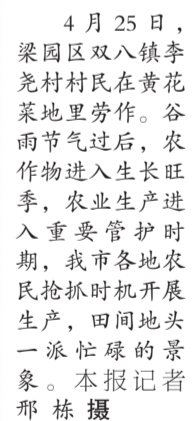 4月25日，
梁园区双八镇李
尧村村民在黄花
菜地里劳作。谷
雨节气过后，农
作物进入生长旺
季，农业生产进
入重要管护时
期，我市各地农
民抢抓时机开展
生产，田间地头
一派忙碌的景
象。本报记者
邢栋 摄